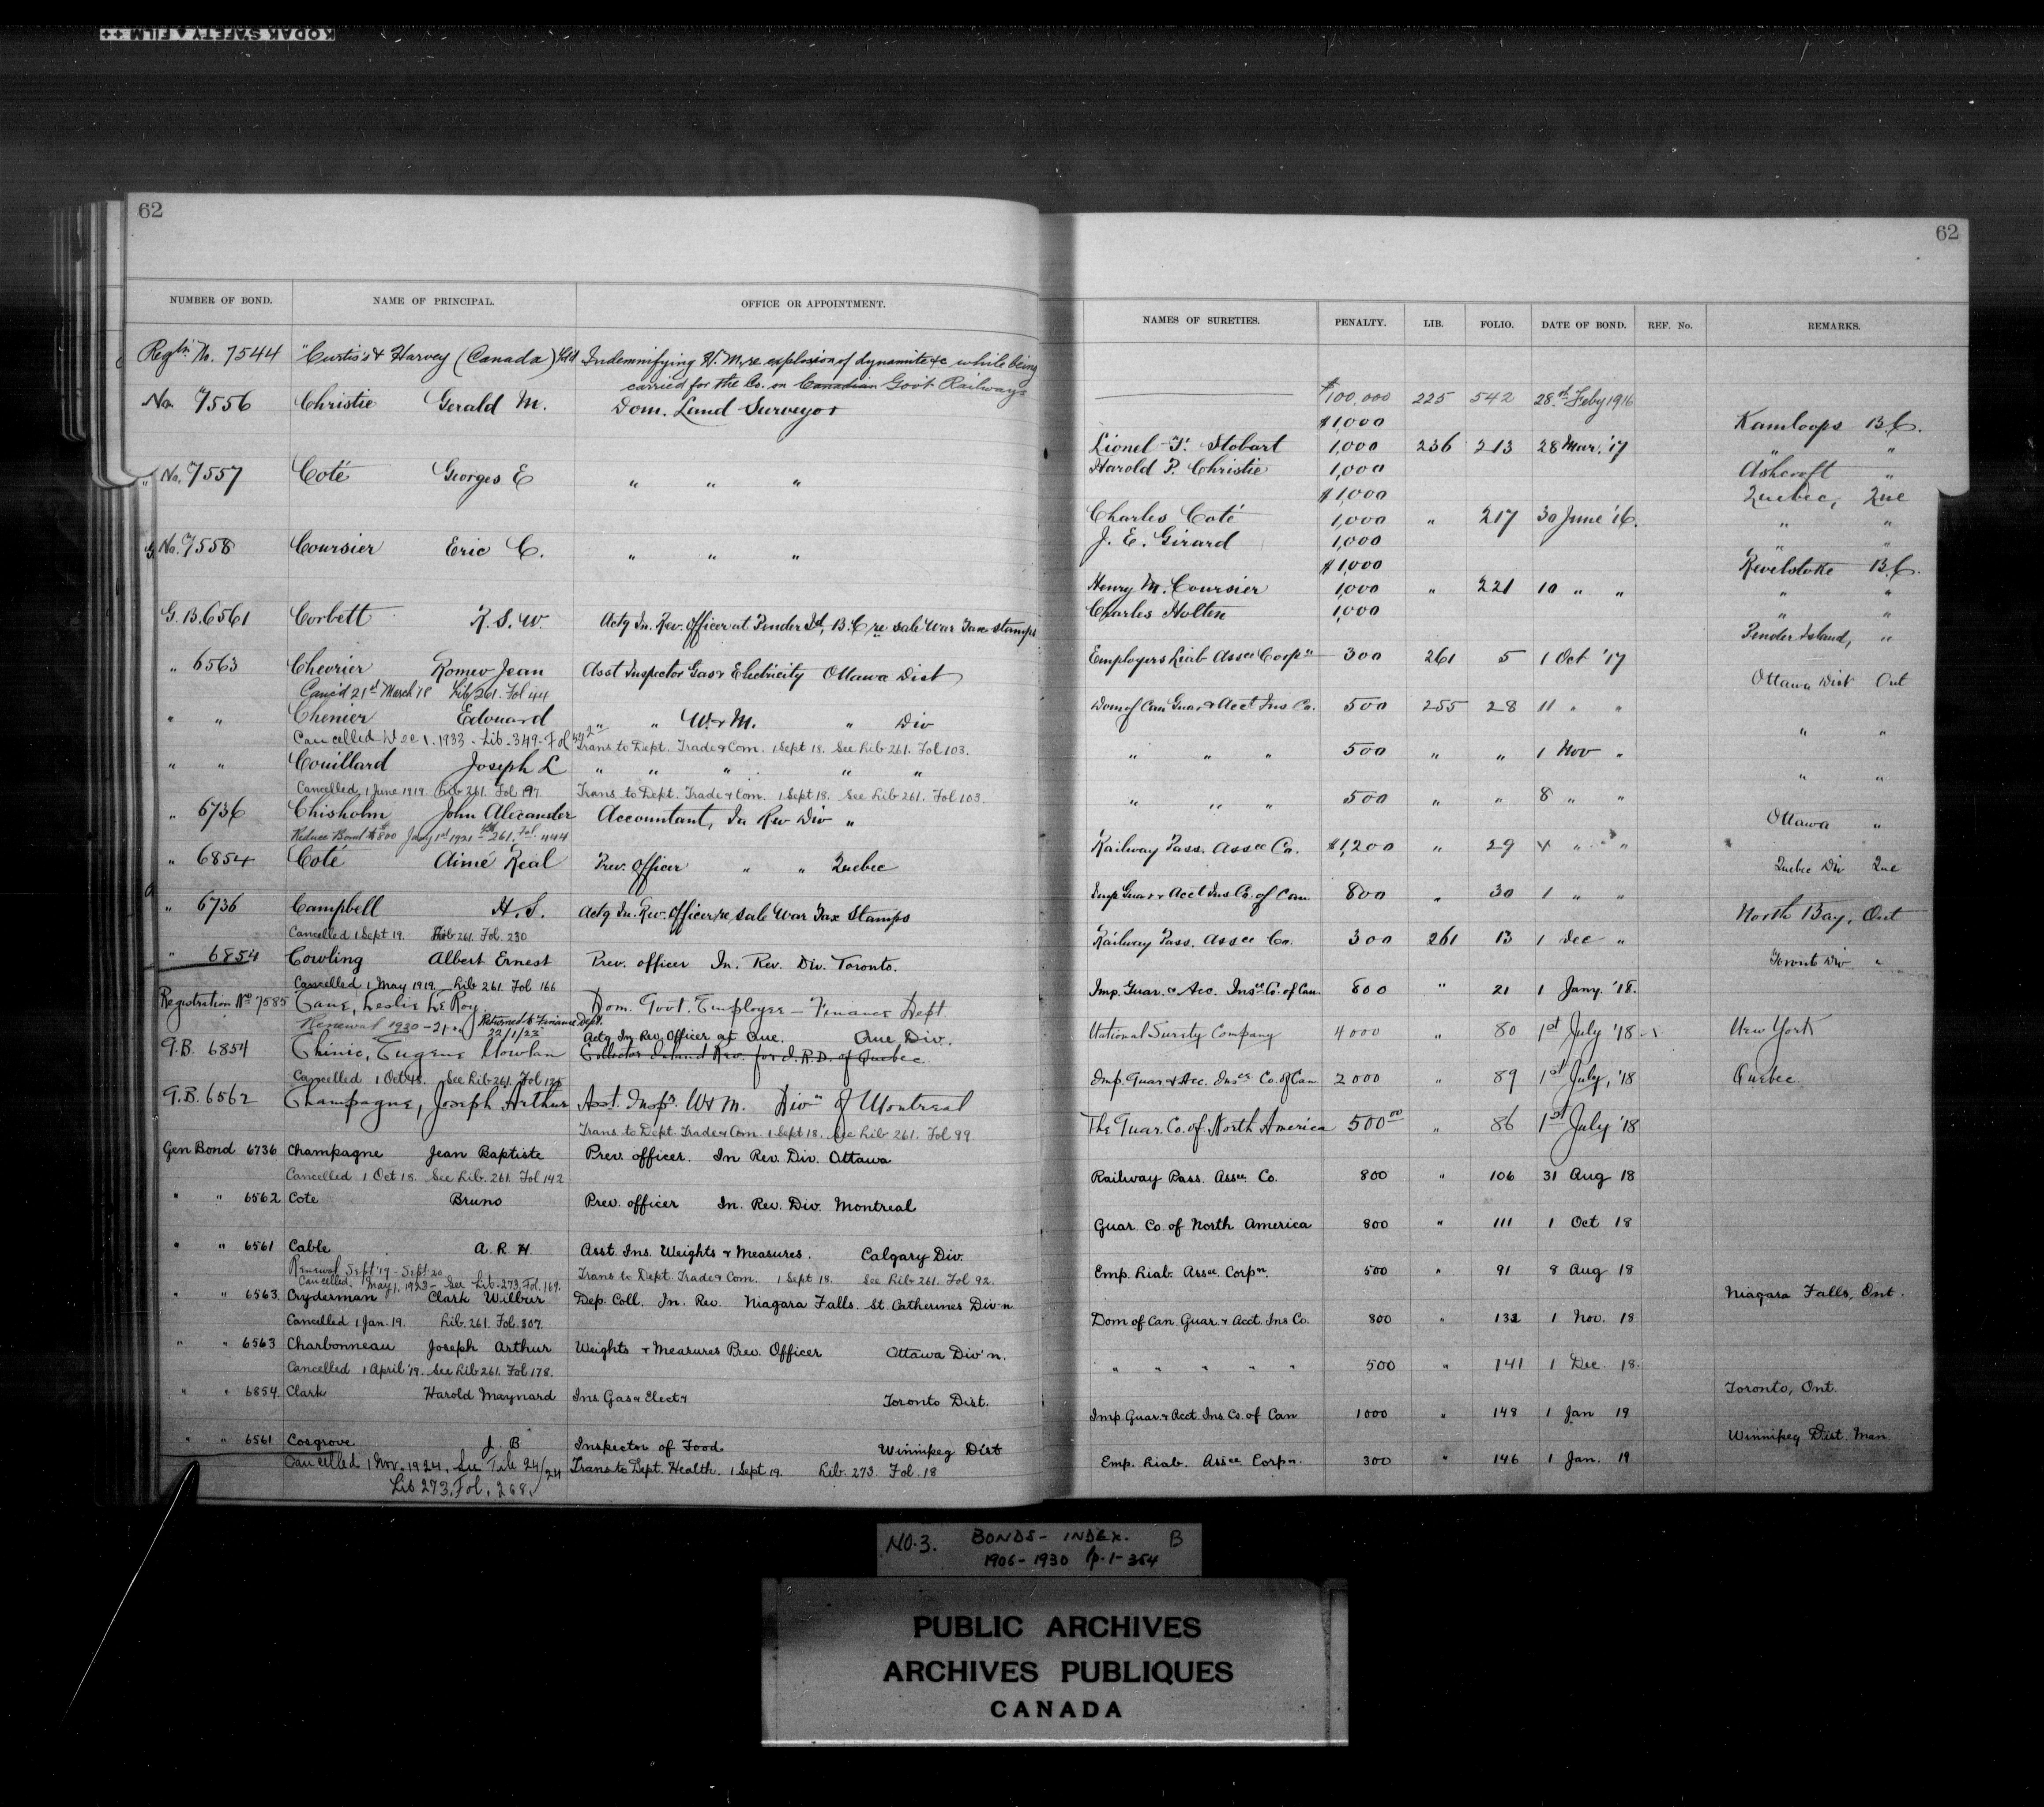 KODAK SAFETY FILM ++
62
NUMBER OF BOND. NAME OF PRINCIPAL. OFFICE OR APPOINTMENT.
Regtn No. 7544 "Curtis's & Harvey (Canada) Ltd Indemnifying H.M. re explosion of dynamite &c while being
carried for the Co. on Canadian Gov't Railways
No. 7556 Christie Gerald M. Dom. Land Surveyor
No. 7557 Coté Georges E " " "
No. 7558 Coursier Eric C. " " "
G.B. 6561 Corbett R.S.W. Actg In. Rev. Officer at Pender Isd, B.C re sale War Tax stamps
" 6563 Chevrier Romeo Jean Asst Inspector Gas & Electricity Ottawa Dist
Canc'd 21st March '18 Lib 261. Fol 44
" " Chenier Edouard " " W. & M. " Div
Cancelled Dec 1. 1933 - Lib. 349 - Fol Trans to Dept. Trade & Com. 1 Sept 18. See Lib 261. Fol 103.
" " Couillard Joseph L " " " " "
Cancelled 1 June 1919. Lib 261. Fol 197. Trans. to Dept. Trade & Com. 1 Sept 18. See Lib 261. Fol 103.
" 6736 Chisholm John Alexander Accountant, In Rev Div "
Reduce Bond to $800 Jany 1st 1921 Lib 261. Fol. 444
" 6854 Coté Aimé Réal Prev. Officer " " Quebec
" 6736 Campbell H.S. Actg In. Rev. Officer re sale War Tax Stamps
Cancelled 1 Sept 19. Lib 261. Fol. 230
" 6854 Cowling Albert Ernest Prev. officer In. Rev. Div. Toronto.
Cancelled 1 May 1919. Lib 261. Fol 166
Registration No 7585 Cane, Leslie LeRoy Dom. Govt. Employee - Finance Dept.
Renewal 1920-21 Returned to Finance Dept. 22/1/23
Actg In Rev Officer at Que. Que Div.
G.B. 6854 Chinic, Eugene Nowlan Collector Inland Rev. for I.R.D. of Quebec
Cancelled 1 Oct 48. See Lib 261. Fol 125
G.B. 6562 Champagne, Joseph Arthur Asst. Inspr. W & M. Divn of Montreal
Trans. to Dept. Trade & Com. 1 Sept 18. See Lib 261. Fol 99
Gen Bond 6736 Champagne Jean Baptiste Prev. officer. In Rev. Div. Ottawa
Cancelled 1 Oct 18. See Lib. 261. Fol 142
" " 6562 Cote Bruno Prev. officer In. Rev. Div. Montreal
" " 6561 Cable A. R. H. Asst. Ins. Weights & Measures. Calgary Div.
Renewal Sept '19 - Sept. 20
Cancelled May 1, 1923 - See Lib. 273, Fol. 169. Trans to Dept Trade & Com. 1 Sept 18. See Lib 261. Fol 92.
" " 6563 Cryderman Clark Wilbur Dep. Coll. In. Rev. Niagara Falls. St. Catherines Div'n
Cancelled 1 Jan. 19. Lib. 261. Fol. 307.
" " 6563 Charbonneau Joseph Arthur Weights & Measures Prev. Officer Ottawa Div'n.
Cancelled 1 April '19. See Lib 261. Fol 178.
" " 6854 Clark Harold Maynard Ins Gas & Elect'y Toronto Dist.
" " 6561 Cosgrove J. B Inspector of Food Winnipeg Dist
Cancelled 1 Nov. 1924. See File 24/24 Trans to Dept. Health. 1 Sept 19. Lib. 273 Fol. 18
Lib 273, Fol. 268.
62
NAMES OF SURETIES. PENALTY. LIB. FOLIO. DATE OF BOND. REF. No. REMARKS.
$100,000 225 542 28th Feby 1916
$1,000 Kamloops B.C.
Lionel T. Stobart 1,000 236 213 28 Mar. '17 " "
Harold P. Christie 1,000 Ashcroft "
$1000 Quebec, Que
Charles Coté 1,000 " 217 30 June '16. " "
J. E. Girard 1,000 " "
$1000 Revelstoke B.C.
Henry M. Coursier 1,000 " 221 10 " " " "
Charles Holten 1,000 " "
Pender Island, "
Employers Liab Assce Corpn 300 261 5 1 Oct '17
Ottawa Dist Ont
Dom of Can Guar. & Acct Ins Co. 500 255 28 11 " "
" "
" " " 500 " " 1 Nov "
" "
" " " 500 " " 8 " "
Ottawa "
Railway Pass. Assce Co. $1,200 " 29 " "
Quebec Div Que
Imp Guar. & Acct Ins Co. of Can 800 " 30 1 " "
North Bay, Ont
Railway Pass. Assce Co. 300 261 13 1 Dec "
Toronto Div "
Imp. Guar. & Acc. Insce Co. of Can. 800 " 21 1 Jany. '18.
National Surety Company 4000 " 80 1st July '18 New York
Imp. Guar & Acc. Insce Co. of Can 2000 " 89 1st July, '18 Quebec.
The Guar. Co. of North America 500.00 " 86 1st July '18
Railway Pass. Assce. Co. 800 " 106 31 Aug 18
Guar. Co. of North America 800 " 111 1 Oct 18
Emp. Liab. Assce. Corpn. 500 " 91 8 Aug 18
Niagara Falls, Ont.
Dom of Can. Guar. & Acct. Ins Co. 800 " 132 1 Nov. 18
" " " " " 500 " 141 1 Dec. 18.
Toronto, Ont.
Imp. Guar. & Acct. Ins. Co. of Can 1000 " 148 1 Jan 19
Winnipeg Dist. Man.
Emp. Liab. Assce. Corpn. 300 " 146 1 Jan. 19
NO. 3. BONDS - INDEX. B
1906 - 1930 p. 1 - 354
PUBLIC ARCHIVES
ARCHIVES PUBLIQUES
CANADA